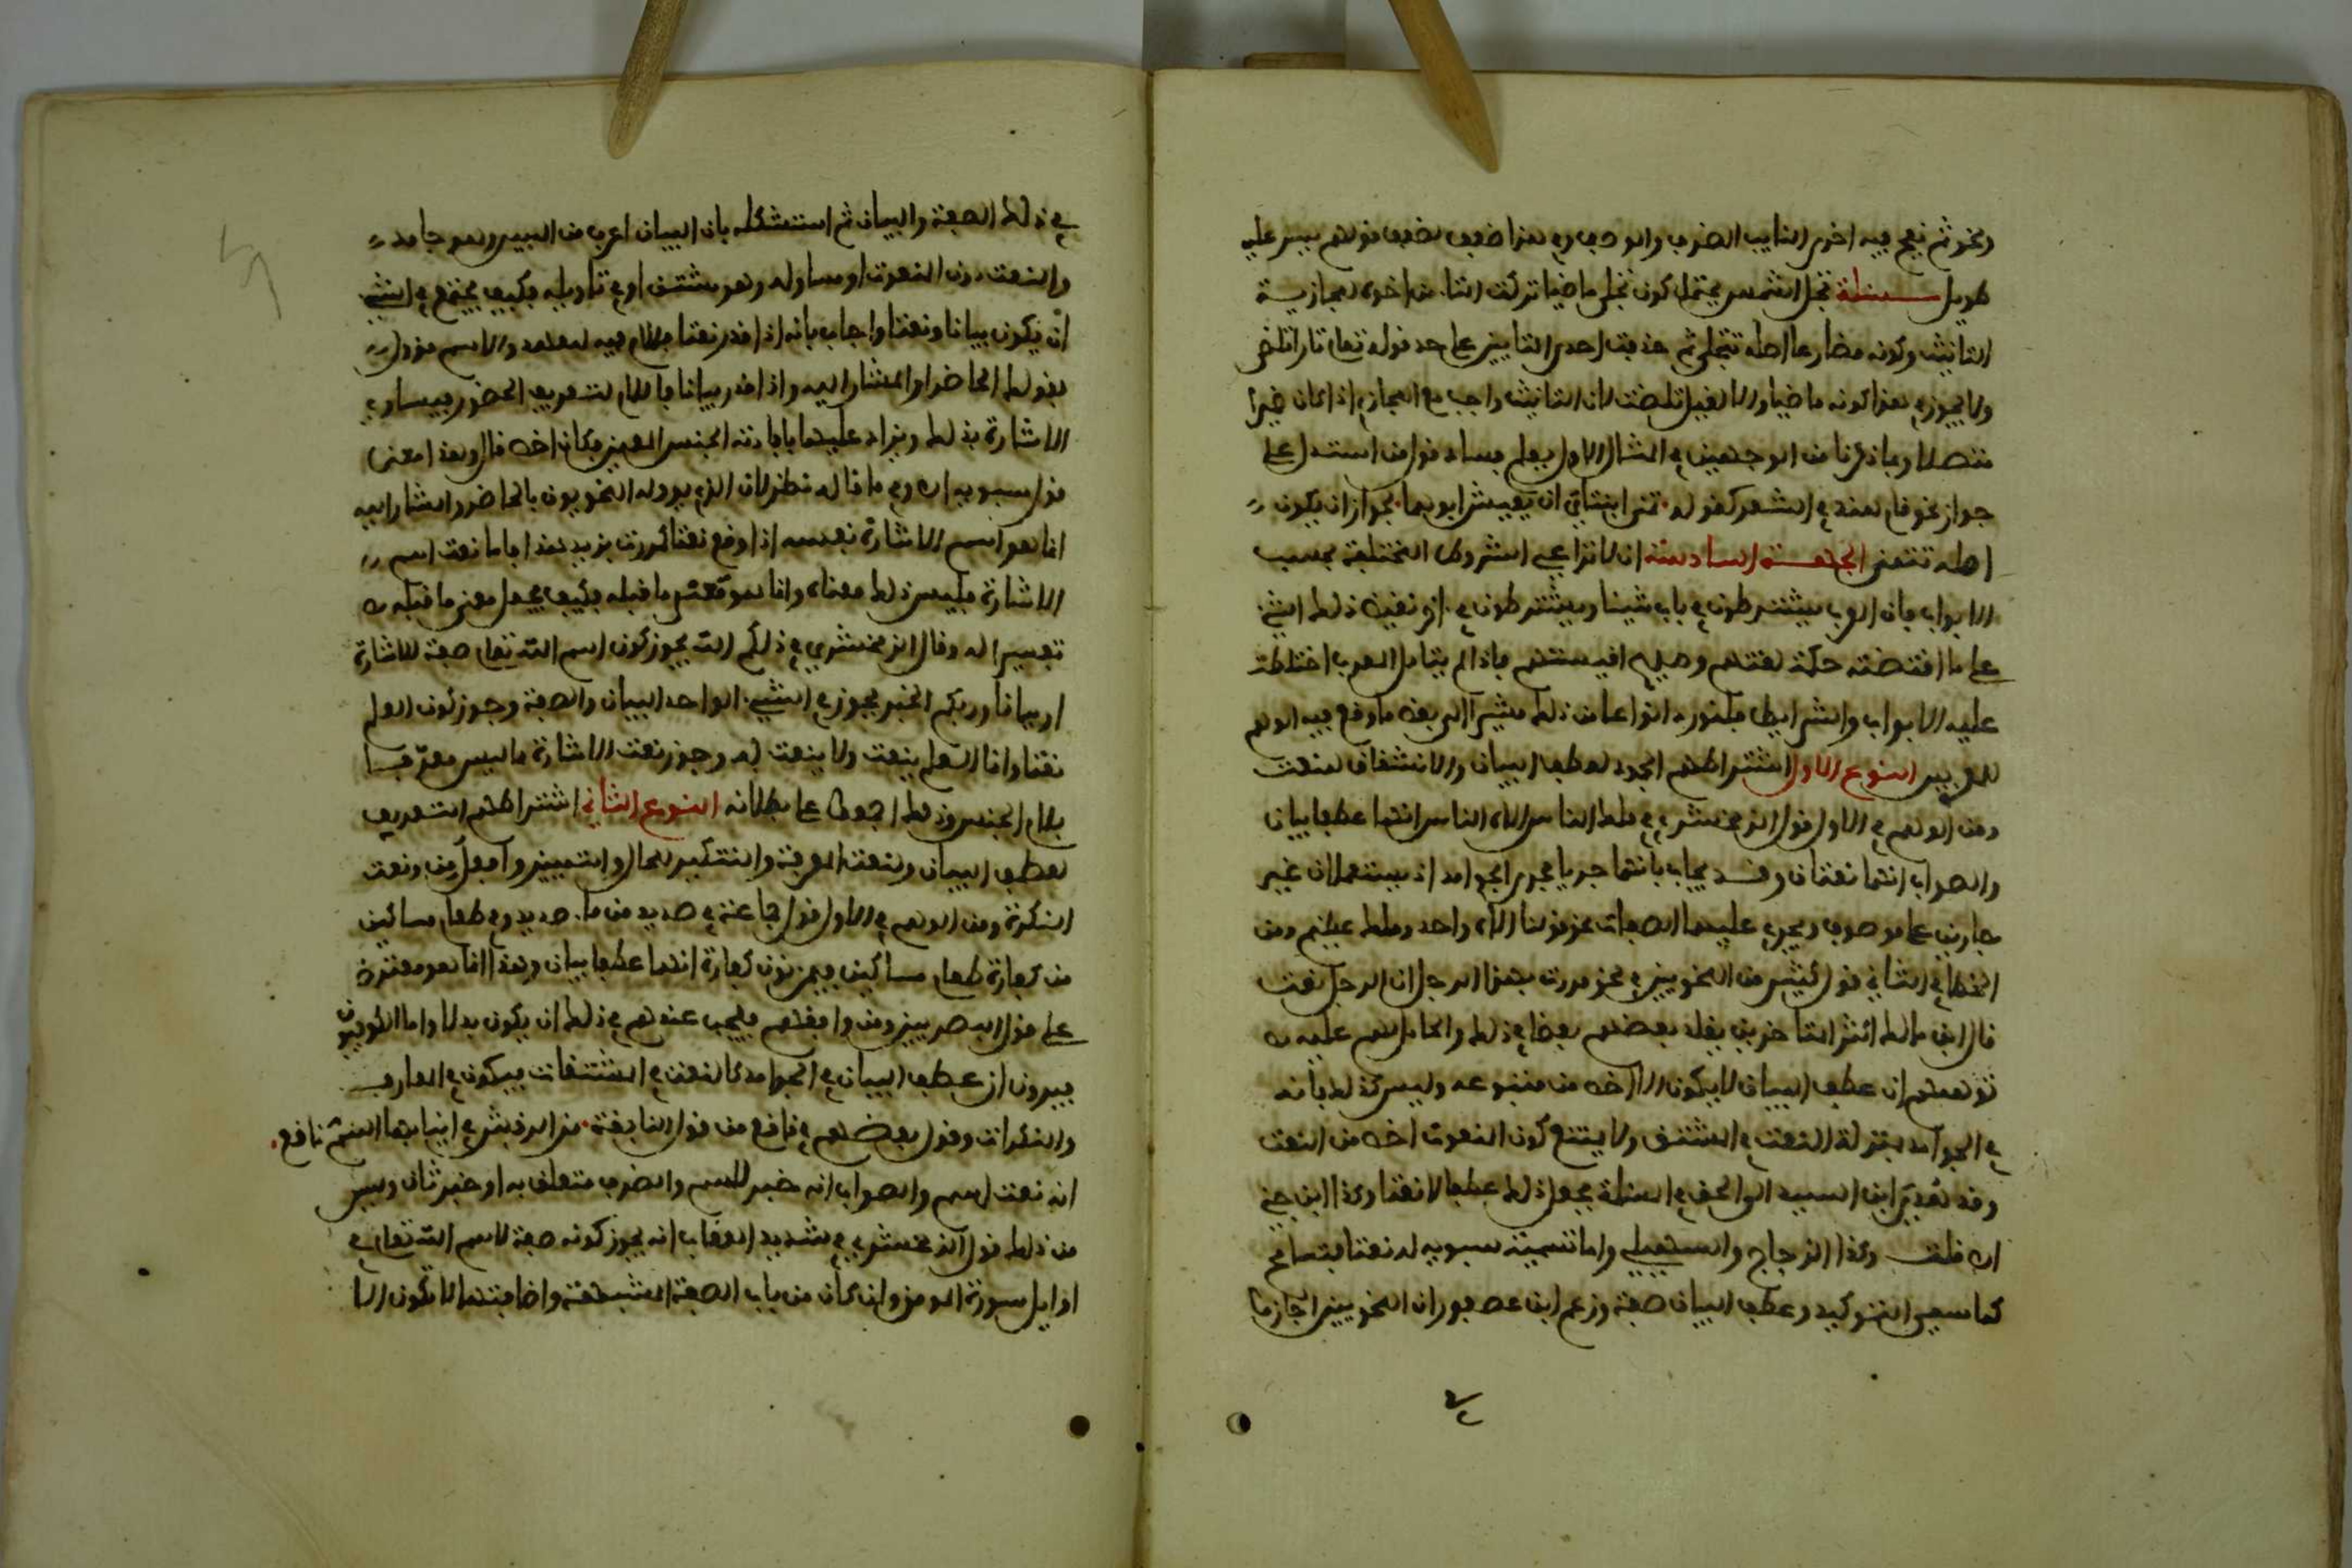 طويل مسئلة تجلى الشمس يحتمل كون تجلى ماضيا تركت التاء من اخره لمجازية
التانيث وكونه مضارعا اصله تتجلى ثم حذفت احدى التاءين على حد قوله تعلى نارا تلظى
ولا يجوز في هذا كونه ماضيا والا لقيل تلظت لان التانيث واجب مع المجازي اذا كان ضميرا
متصلا وبما ذكرنا من الوجهين في المثال الاول يعلم فساد قول من استدل على
جواز نحو قام هند في الشعر كقوله تمنى ابنتاي ان يعيش ابوهما لجواز ان يكون
اصله تتمنى الجهة السادسة ان لا تراعى الشروط المختلفة بحسب
الابواب فان العرب يشترطون في باب شيئا ويشترطون في اخر نقيض ذلك الشيء
على ما اقتضته حكمة لغتهم وصحيح اقيستهم فاذا لم يتامل المعرب اختلطت
عليه الابواب والشرايط فلنورد انواعا من ذلك مشيرا الى بعض ما وقع فيه الوهم
للمعربين النوع الاول اشتراطهم الجمود لعطف البيان والاشتقاق للنعت
ومن الوهم في الاول قول الزمخشري في ملك الناس الاه الناس انهما عطفا بيان
والصواب انهما نعتان وقد يجاب بانهما جريا مجرى الجوامد اذ يستعملان غير
جاريين على موصوف وتجري عليهما الصفات نحو قولنا الاه واحد وملك عظيم ومن
الخطا في الثاني قول كثير من النحويين في نحو مررت بهذا الرجل ان الرجل نعت
قال ابن مالك اكثر المتاخرين يقلد بعضهم بعضا في ذلك والحامل لهم عليه
توهمهم ان عطف البيان لا يكون الا اخص من متبوعه وليس كذلك فانه
في الجوامد بمنزلة النعت في المشتق ولا يمتنع كون المنعوت اخص من النعت
وقد هدي ابن السيد الى الحق في المسئلة فجعل ذلك عطفا لا نعتا وكذا ابن جني
اه قلت وكذا الزجاج والسهيلي واما تسمية سيبويه له نعتا فتسامح
كما سمى التوكيد وعطف البيان صفة وزعم ابن عصفور ان النحويين اجازوا
في ذلك الصفة والبيان ثم استشكله بان البيان اعرف من المبين وهو جامد
والنعت دون المنعوت او مساو له وهو مشتق او في تاويله فكيف يجتمع في الشيء
ان يكون بيانا ونعتا واجاب بانه اذا قدر نعتا فاللام فيه للعهد والاسم مؤول
بقولك الحاضر او المشار اليه واذا قدر بيانا فاللام لتعريف الحضور فيساوي
الاشارة بذلك ويزاد عليها بافادته الجنس المعين فكان اخص قال وهذا معنى
قول سيبويه اه وفي ما قاله نظر لان الذي يوولـه النحويون بالحاضر والمشار اليه
انما هو اسم الاشارة نفسه اذا وقع نعتا كمررت بزيد هذا فاما نعت اسم
الاشارة فليس ذلك معناه وانما هو معنى ما قبله فكيف يجعل معنى ما قبله
تفسيرا له وقال الزمخشري في ذلكم الله يجوز كون اسم الله تعلى صفة للاشارة
او بيانا وربكم الخبر فجوز في الشيء الواحد البيان والصفة وجوز كون العلم
نعتا وانما العلم ينعت ولا ينعت به وجوز نعت الاشارة بما ليس معرفا
بلام الجنس وذلك اجمعوا على بطلانه النوع الثاني اشتراطهم التعريف
لعطف البيان ولنعت المعرفة والتنكير للحال والتمييز وافعل من ونعت
النكرة ومن الوهم في الاول قول جماعة في صديد من ماء صديد وفي طعام مساكين
من كفارة طعام مساكين فيمن نون كفارة انهما عطفا بيان وهذا انما هو معترض
على قول البصريين ومن وافقهم فيجب عندهم في ذلك ان يكون بدلا واما الكوفيون
فيرون ان عطف البيان في الجوامد كالنعت في المشتقات فيكون في المعارف
والنكرات وقول بعضهم في ناقع من قول النابغة من الرقش في انيابها السم ناقع
انه نعت للسم والصواب انه خبر للسم والظرف متعلق به او خبر ثان وليس
من ذلك قول الزمخشري في شديد العقاب انه يجوز كونه صفة لاسم الله تعلى في
اوايل سورة المومن وان كان من باب الصفة المشبهة واضافتها لا تكون الا